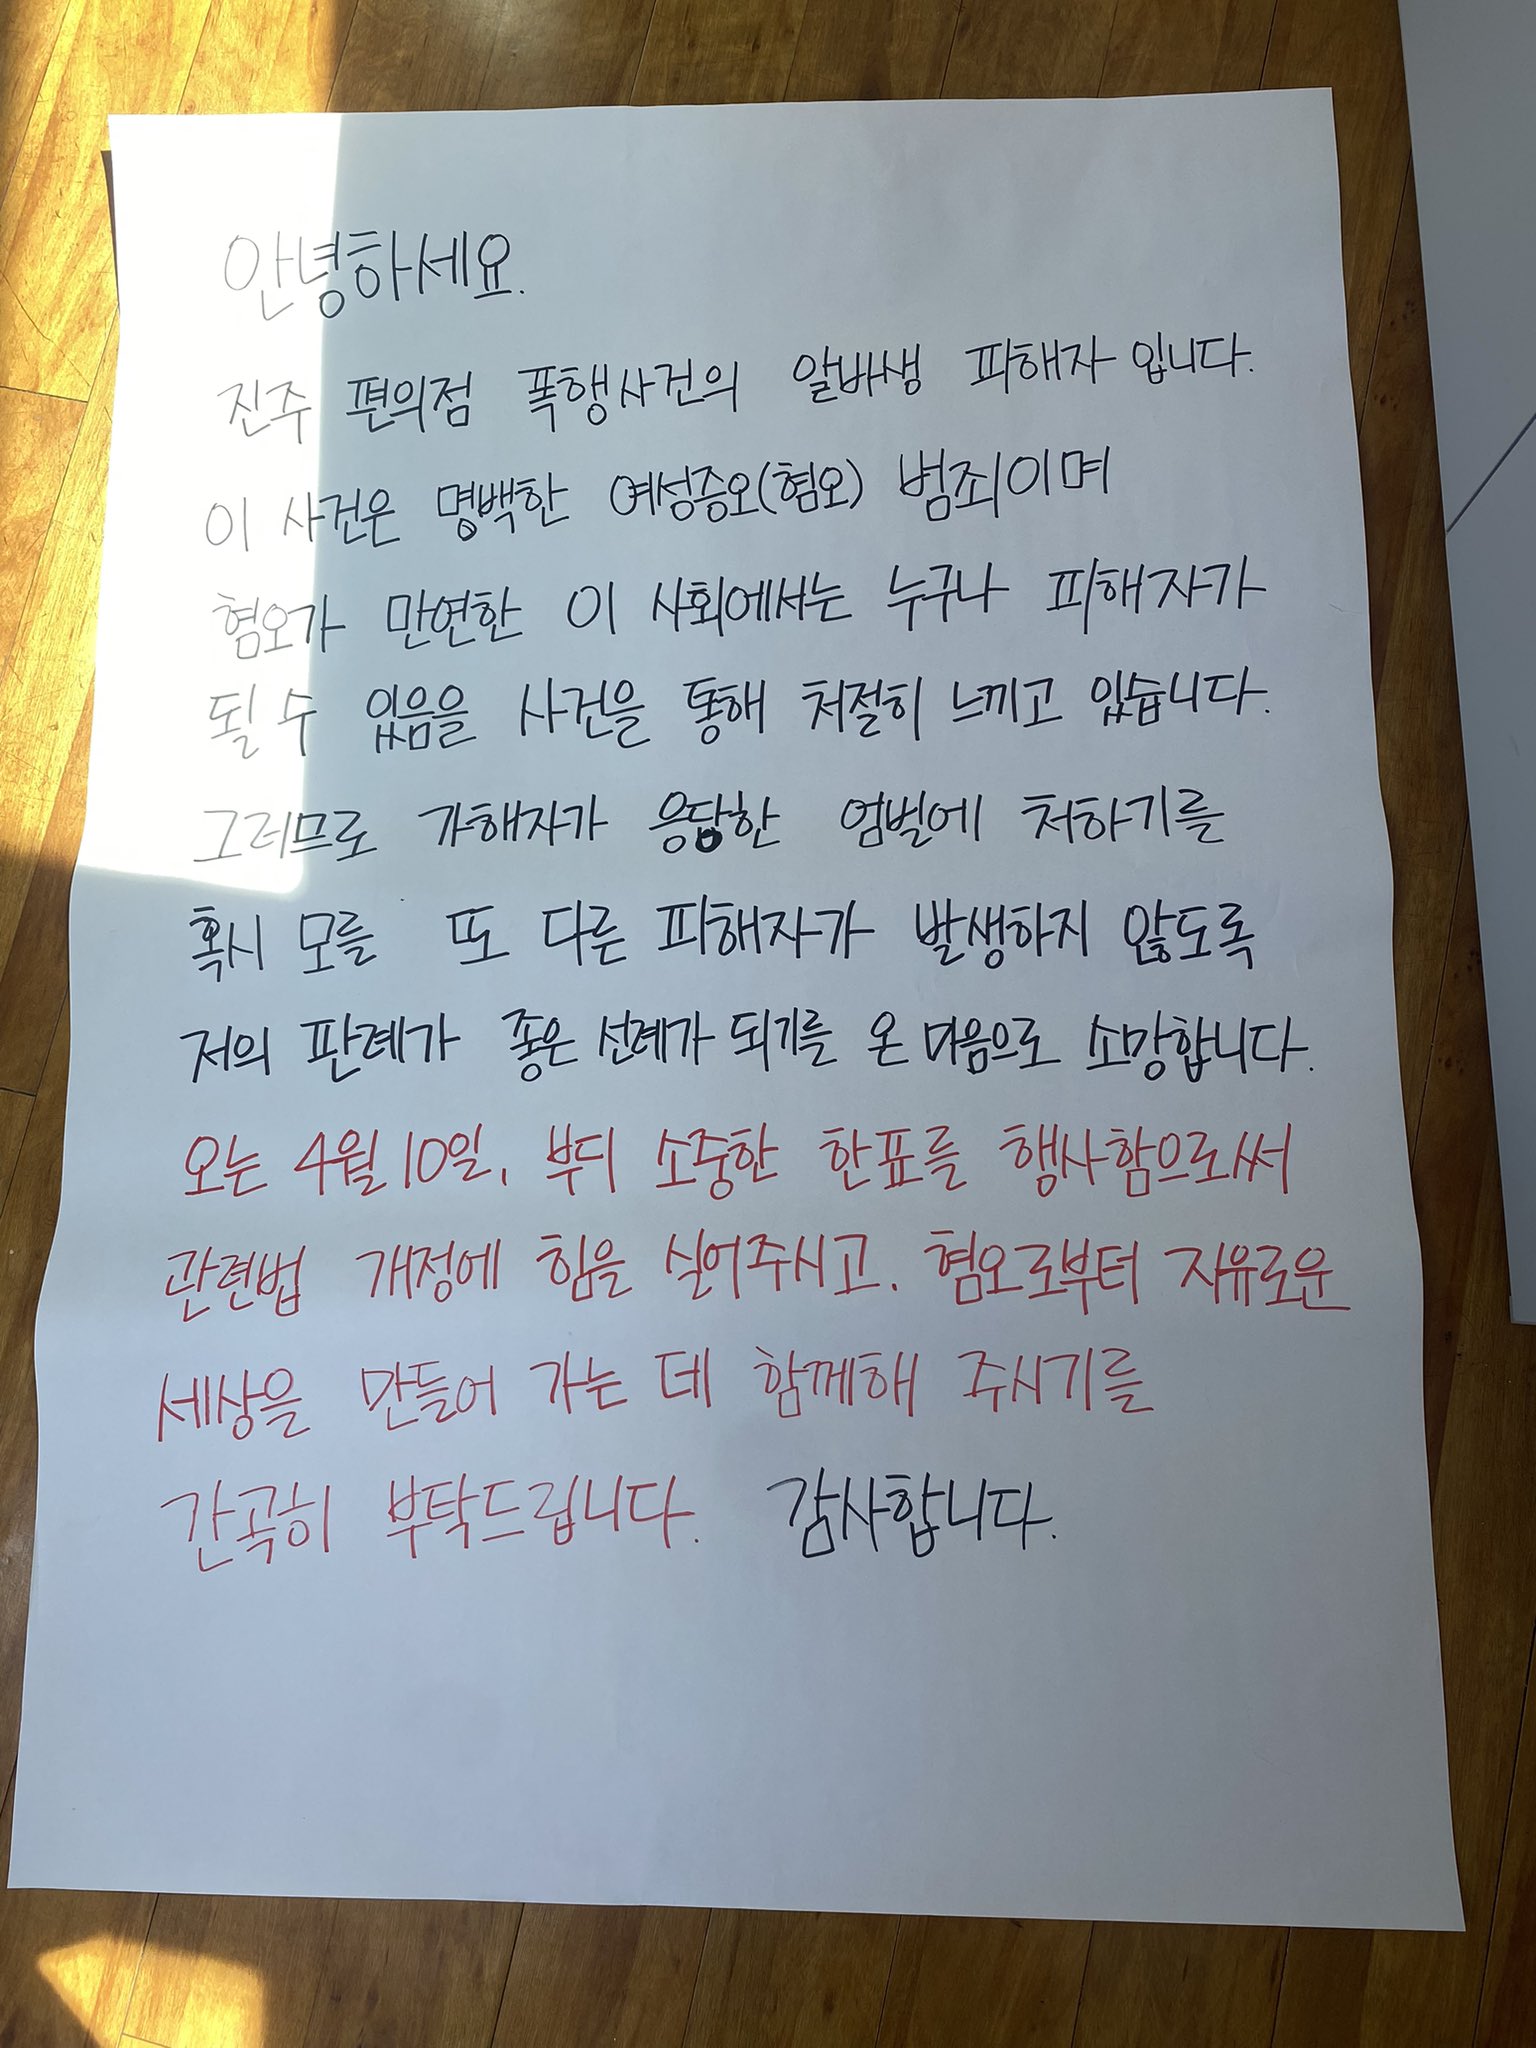 안녕하세요.
진주 편의점 폭행사건의 알바생 피해자 입니다.
이 사건은 명백한 여성증오(혐오) 범죄이며
혐오가 만연한 이 사회에서는 누구나 피해자가
될 수 있음을 사건을 통해 처절히 느끼고 있습니다.
그러므로 가해자가 응당한 엄벌에 처하기를
혹시 모를 또 다른 피해자가 발생하지 않도록
저의 판례가 좋은 선례가 되기를 온 마음으로 소망합니다.
오는 4월 10일, 부디 소중한 한표를 행사함으로써
관련법 개정에 힘을 실어주시고, 혐오로부터 자유로운
세상을 만들어 가는 데 함께해 주시기를
간곡히 부탁드립니다. 감사합니다.